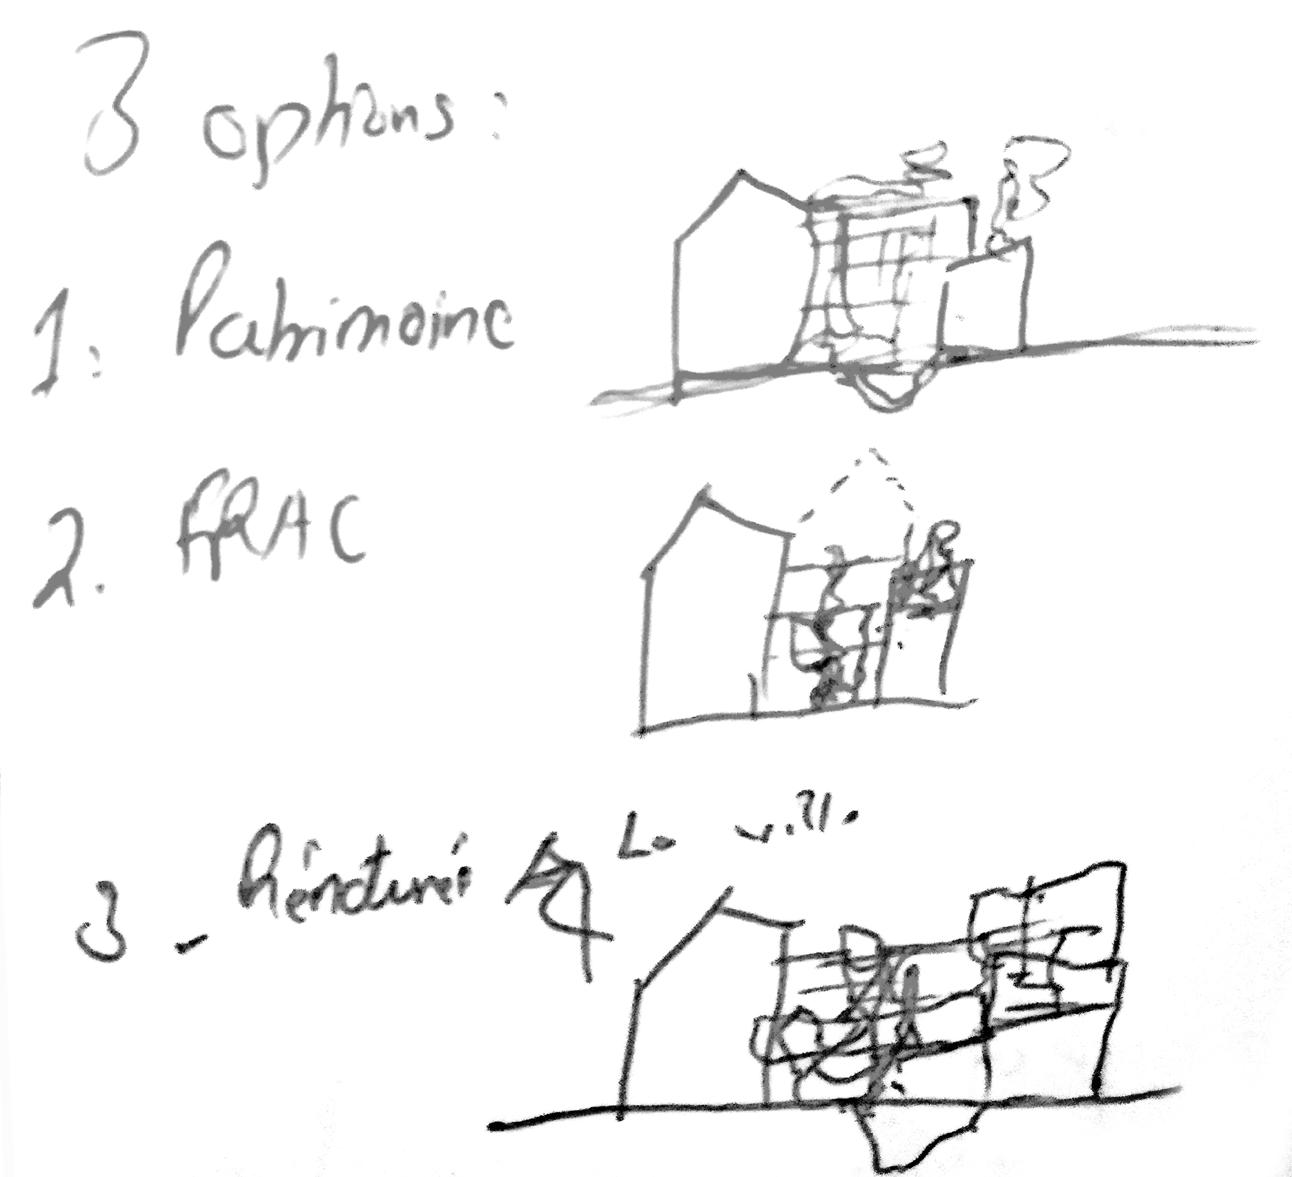 3 options :
1. Patrimoine
2. FRAC
3 - Rénaturer la ville